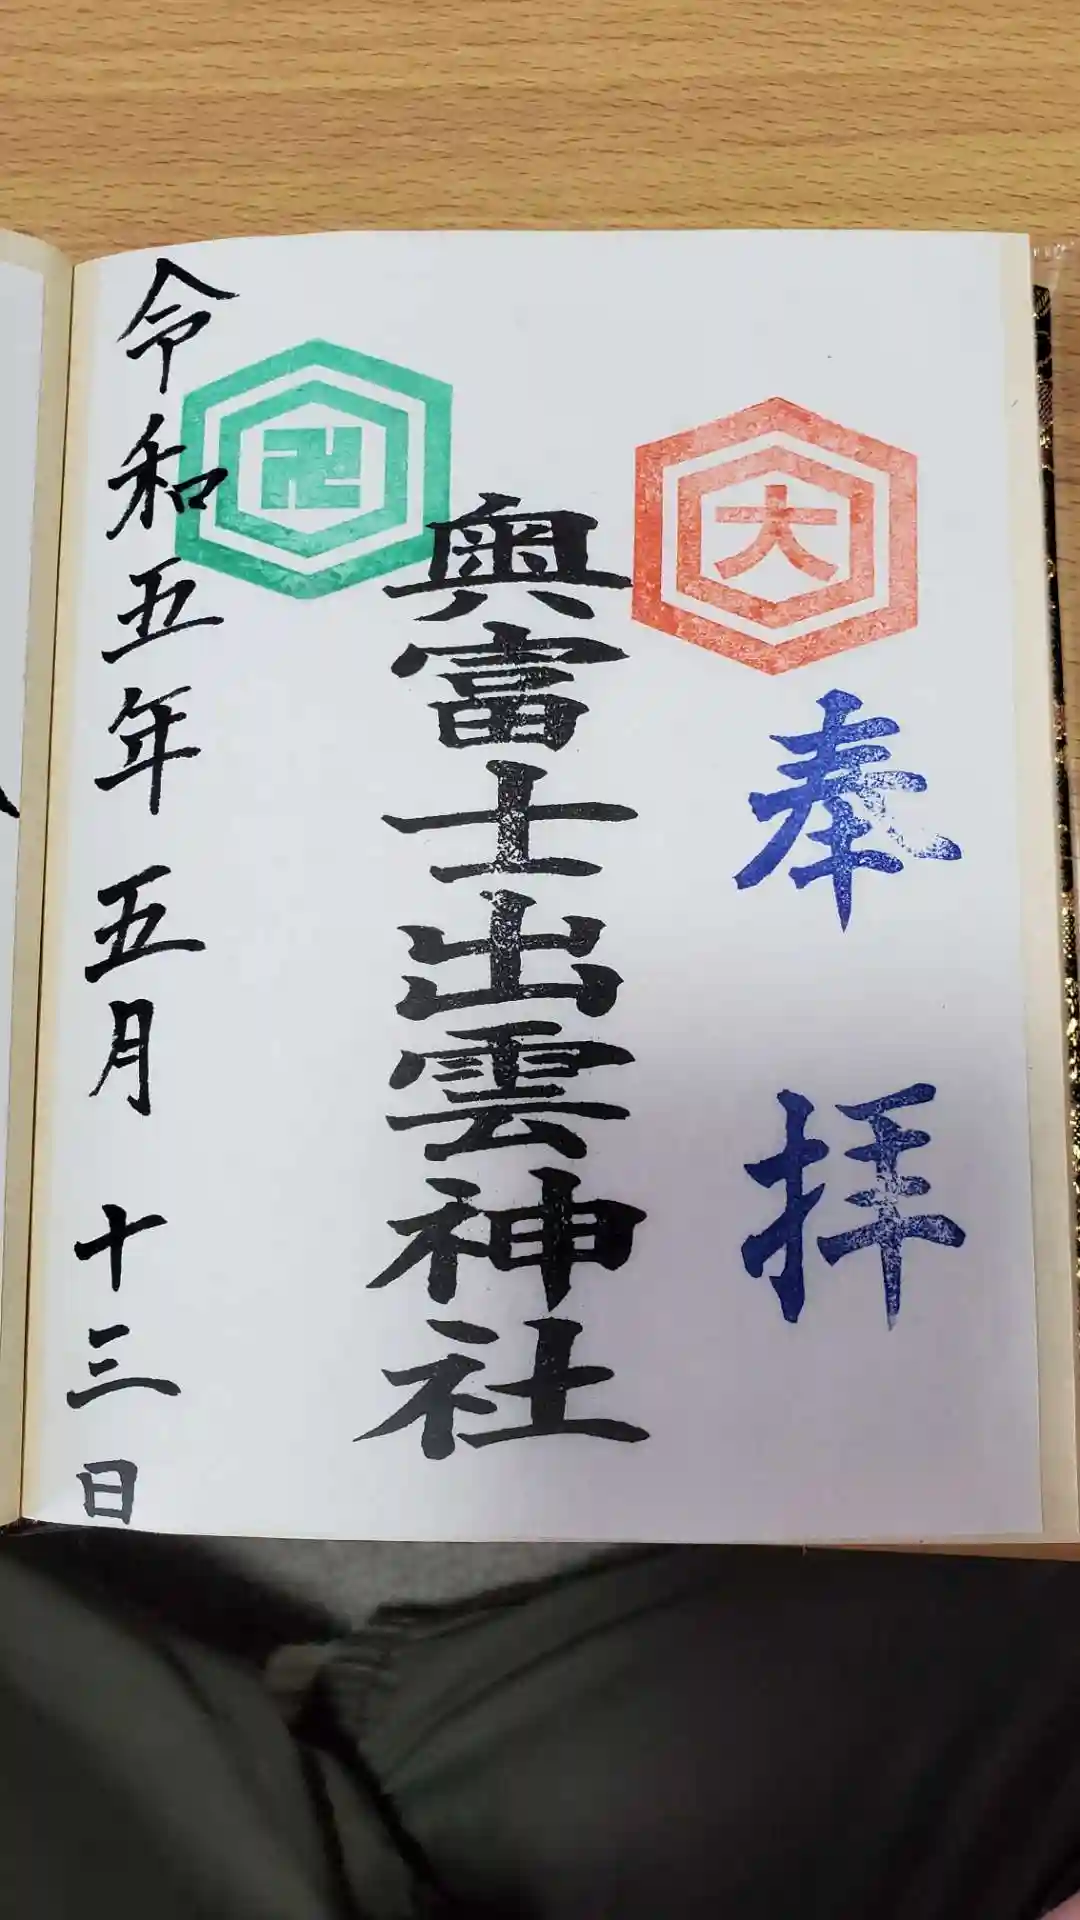 大
奉拝
奥富士出雲神社
卍
令和五年五月十三日